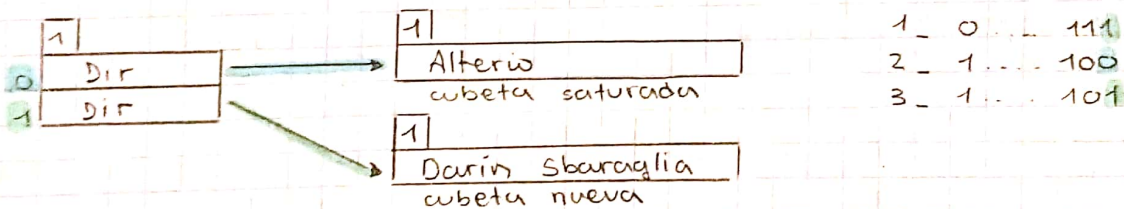 1
0 Dir
1 Dir
1
Alterio
cubeta saturada
1
Darín Sbaraglia
cubeta nueva
1_ 0 .... 111
2_ 1 .... 100
3_ 1 ... 101